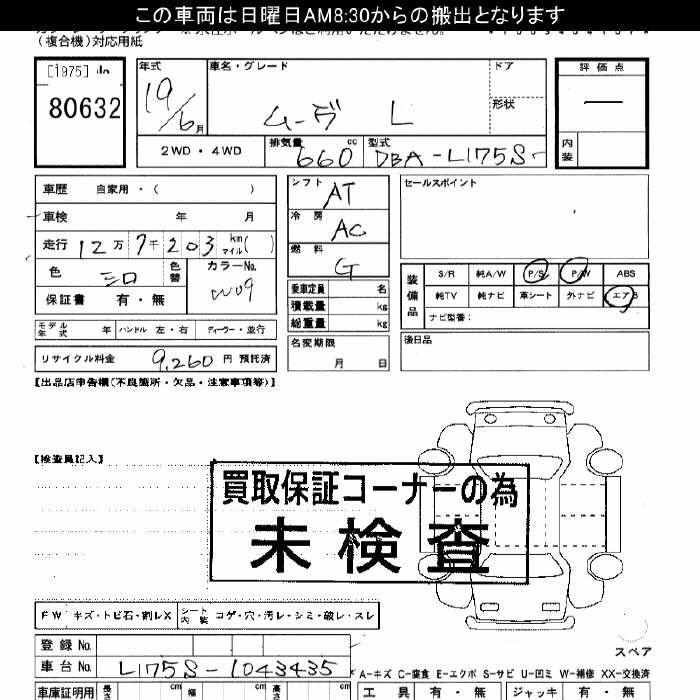 この車両は日曜日AM8:30からの搬出となります
(複合機)対応用紙
[1975]
80632
年式 19/6月
車名・グレード ムーヴ L
ドア
形状
評価点 —
内装
2WD・4WD
排気量 660 cc
型式 DBA-L175S-
車歴 自家用・( )
車検 年 月
走行 12万7千203 km マイル( )
色
色替
カラーNo. W09
保証書 有・無
モデル年式 年 ハンドル 左・右 ディーラー・並行
リサイクル料金 9,260 円 預託済
シフト AT
冷房 AC
燃料 G
乗車定員 名
積載量 kg
総重量 kg
名変期限 月 日
セールスポイント
装備品
S/R 純A/W P/S P/W ABS
純TV 純ナビ 革シート 外ナビ エアB
ナビ型番:
後日品
【出品店申告欄(不良箇所・欠品・注意事項等)】
【検査員記入】
買取保証コーナーの為
未検査
FW キズ・トビ石・割レX
シート内装 コゲ・穴・汚レ・シミ・破レ・スレ
スペア
登録No.
車台No. L175S-1043435
A-キズ C-腐食 E-エクボ S-サビ U-凹ミ W-補修 XX-交換済
車庫証明用 長さ cm 幅 cm 高さ cm
工具 有・無 ジャッキ 有・無